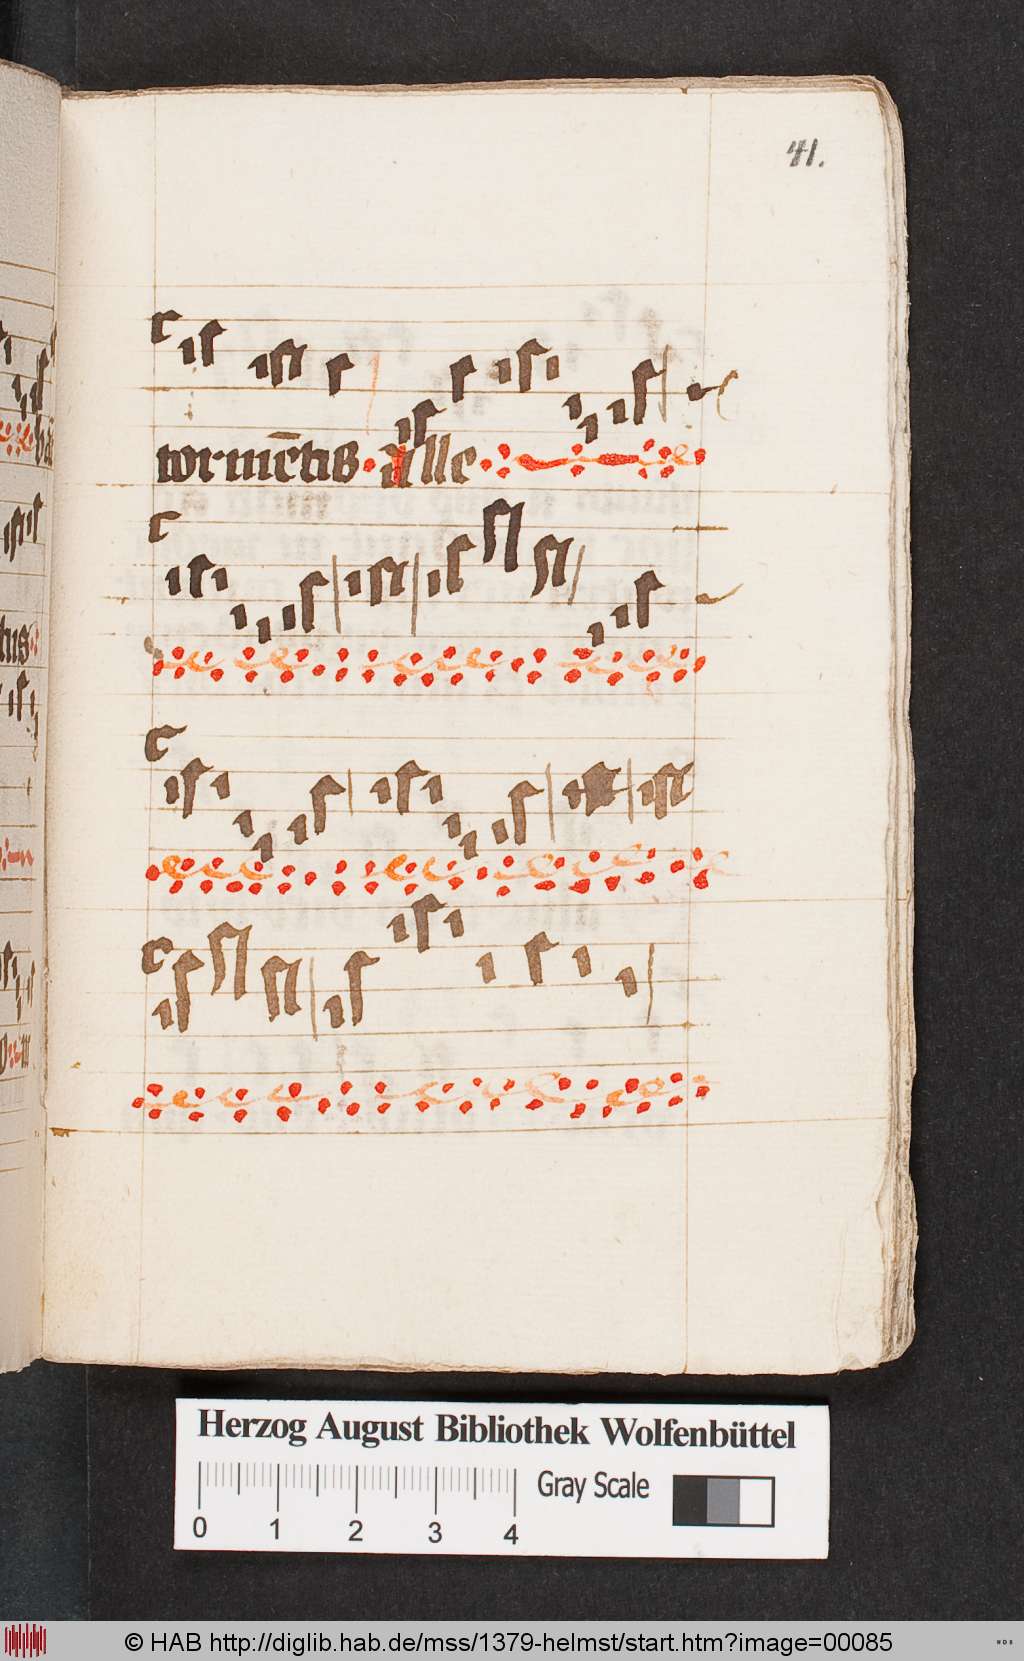 41.
tormētis Alle
Herzog August Bibliothek Wolfenbüttel
Gray Scale
0 1 2 3 4
© HAB http://diglib.hab.de/mss/1379-helmst/start.htm?image=00085